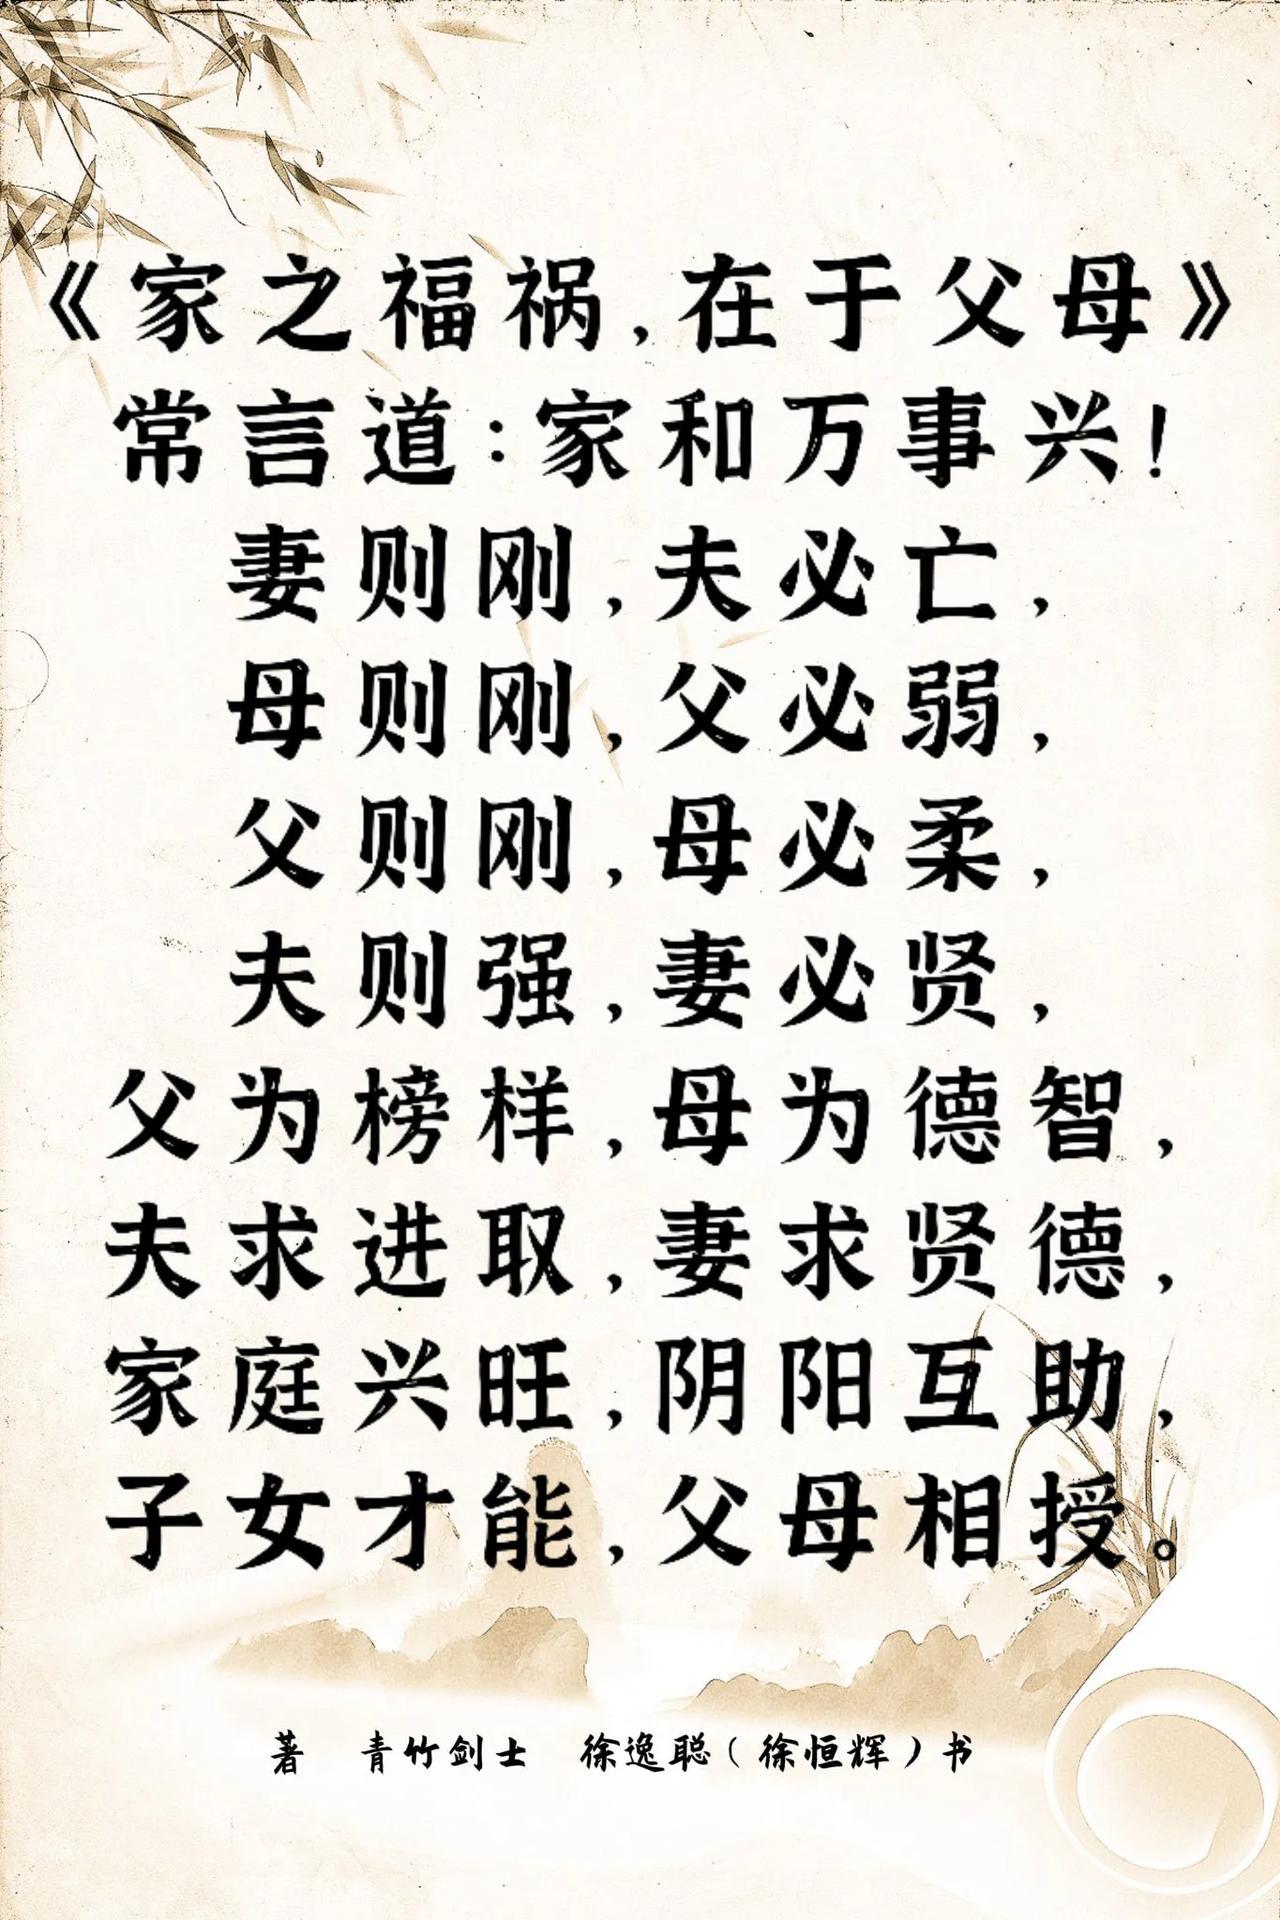 《家之福祸,在于父母》
常言道:家和万事兴!
妻则刚,夫必亡,
母则刚,父必弱,
父则刚,母必柔,
夫则强,妻必贤,
父为榜样,母为德智,
夫求进取,妻求贤德,
家庭兴旺,阴阳互助,
子女才能,父母相授。
著 青竹剑士 徐逸聪(徐恒辉)书